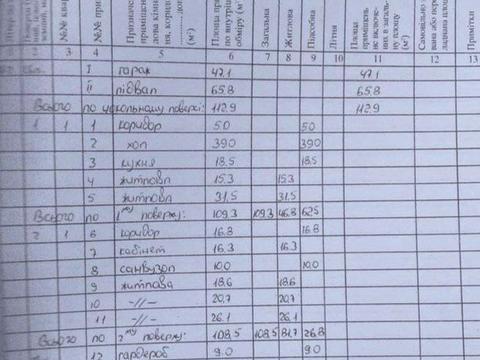 №№ при
Площа
по внутрі
обміру (м²)
Загальна
Житлова
Підсобна
Літня
Площа
приміщень
не включе-
них в загаль-
ну площу
(м²)
Самовільно
Примітки
3 4 5 6 7 8 9 10 11 12 13
I гараж 47.1 47.1
II підвал 65.8 65.8
Всього по цокольному поверсі: 112.9 112.9
1 1 1 коридор 5.0 5.0
2 хол 39.0 39.0
3 кухня 18.5 18.5
4 житлова 15.3 15.3
5 житлова 31.5 31.5
Всього по 1му поверху: 109.3 109.3 46.8 62.5
2 1 6 коридор 16.8 16.8
7 кабінет 16.3 16.3
8 санвузол 10.0 10.0
9 житлова 18.6 18.6
10 -//- 20.7 20.7
11 -//- 26.1 26.1
Всього по 2му поверху: 108.5 108.5 81.7 26.8
12 гардероб 9.0 9.0